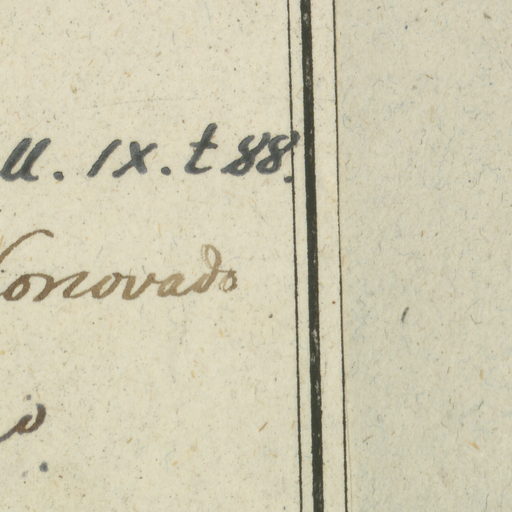 u. IX. t 88.
onovado
o